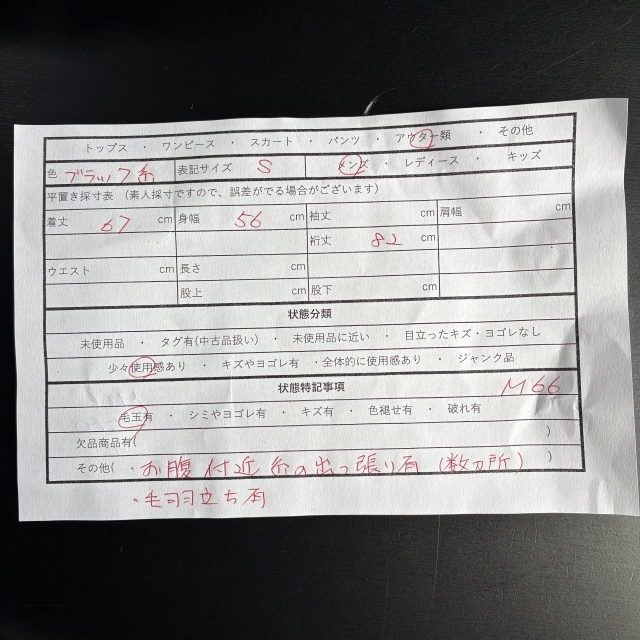 トップス ・ ワンピース ・ スカート ・ パンツ ・ アウター類 ・ その他
色 ブラック系 表記サイズ S メンズ ・ レディース ・ キッズ
平置き採寸表 (素人採寸ですので、誤差がでる場合がございます)
着丈 67 cm 身幅 56 cm 袖丈 cm 肩幅 cm
裄丈 82 cm
ウエスト cm 長さ cm
股上 cm 股下 cm
状態分類
未使用品 ・ タグ有(中古品扱い) ・ 未使用品に近い ・ 目立ったキズ・ヨゴレなし
少々使用感あり ・ キズやヨゴレ有 ・全体的に使用感あり ・ ジャンク品
状態特記事項 M66
毛玉有 ・ シミやヨゴレ有 ・ キズ有 ・ 色褪せ有 ・ 破れ有
欠品商品有( )
その他( ・お腹付近 糸の出っ張り有 (数カ所) )
・毛羽立ち有